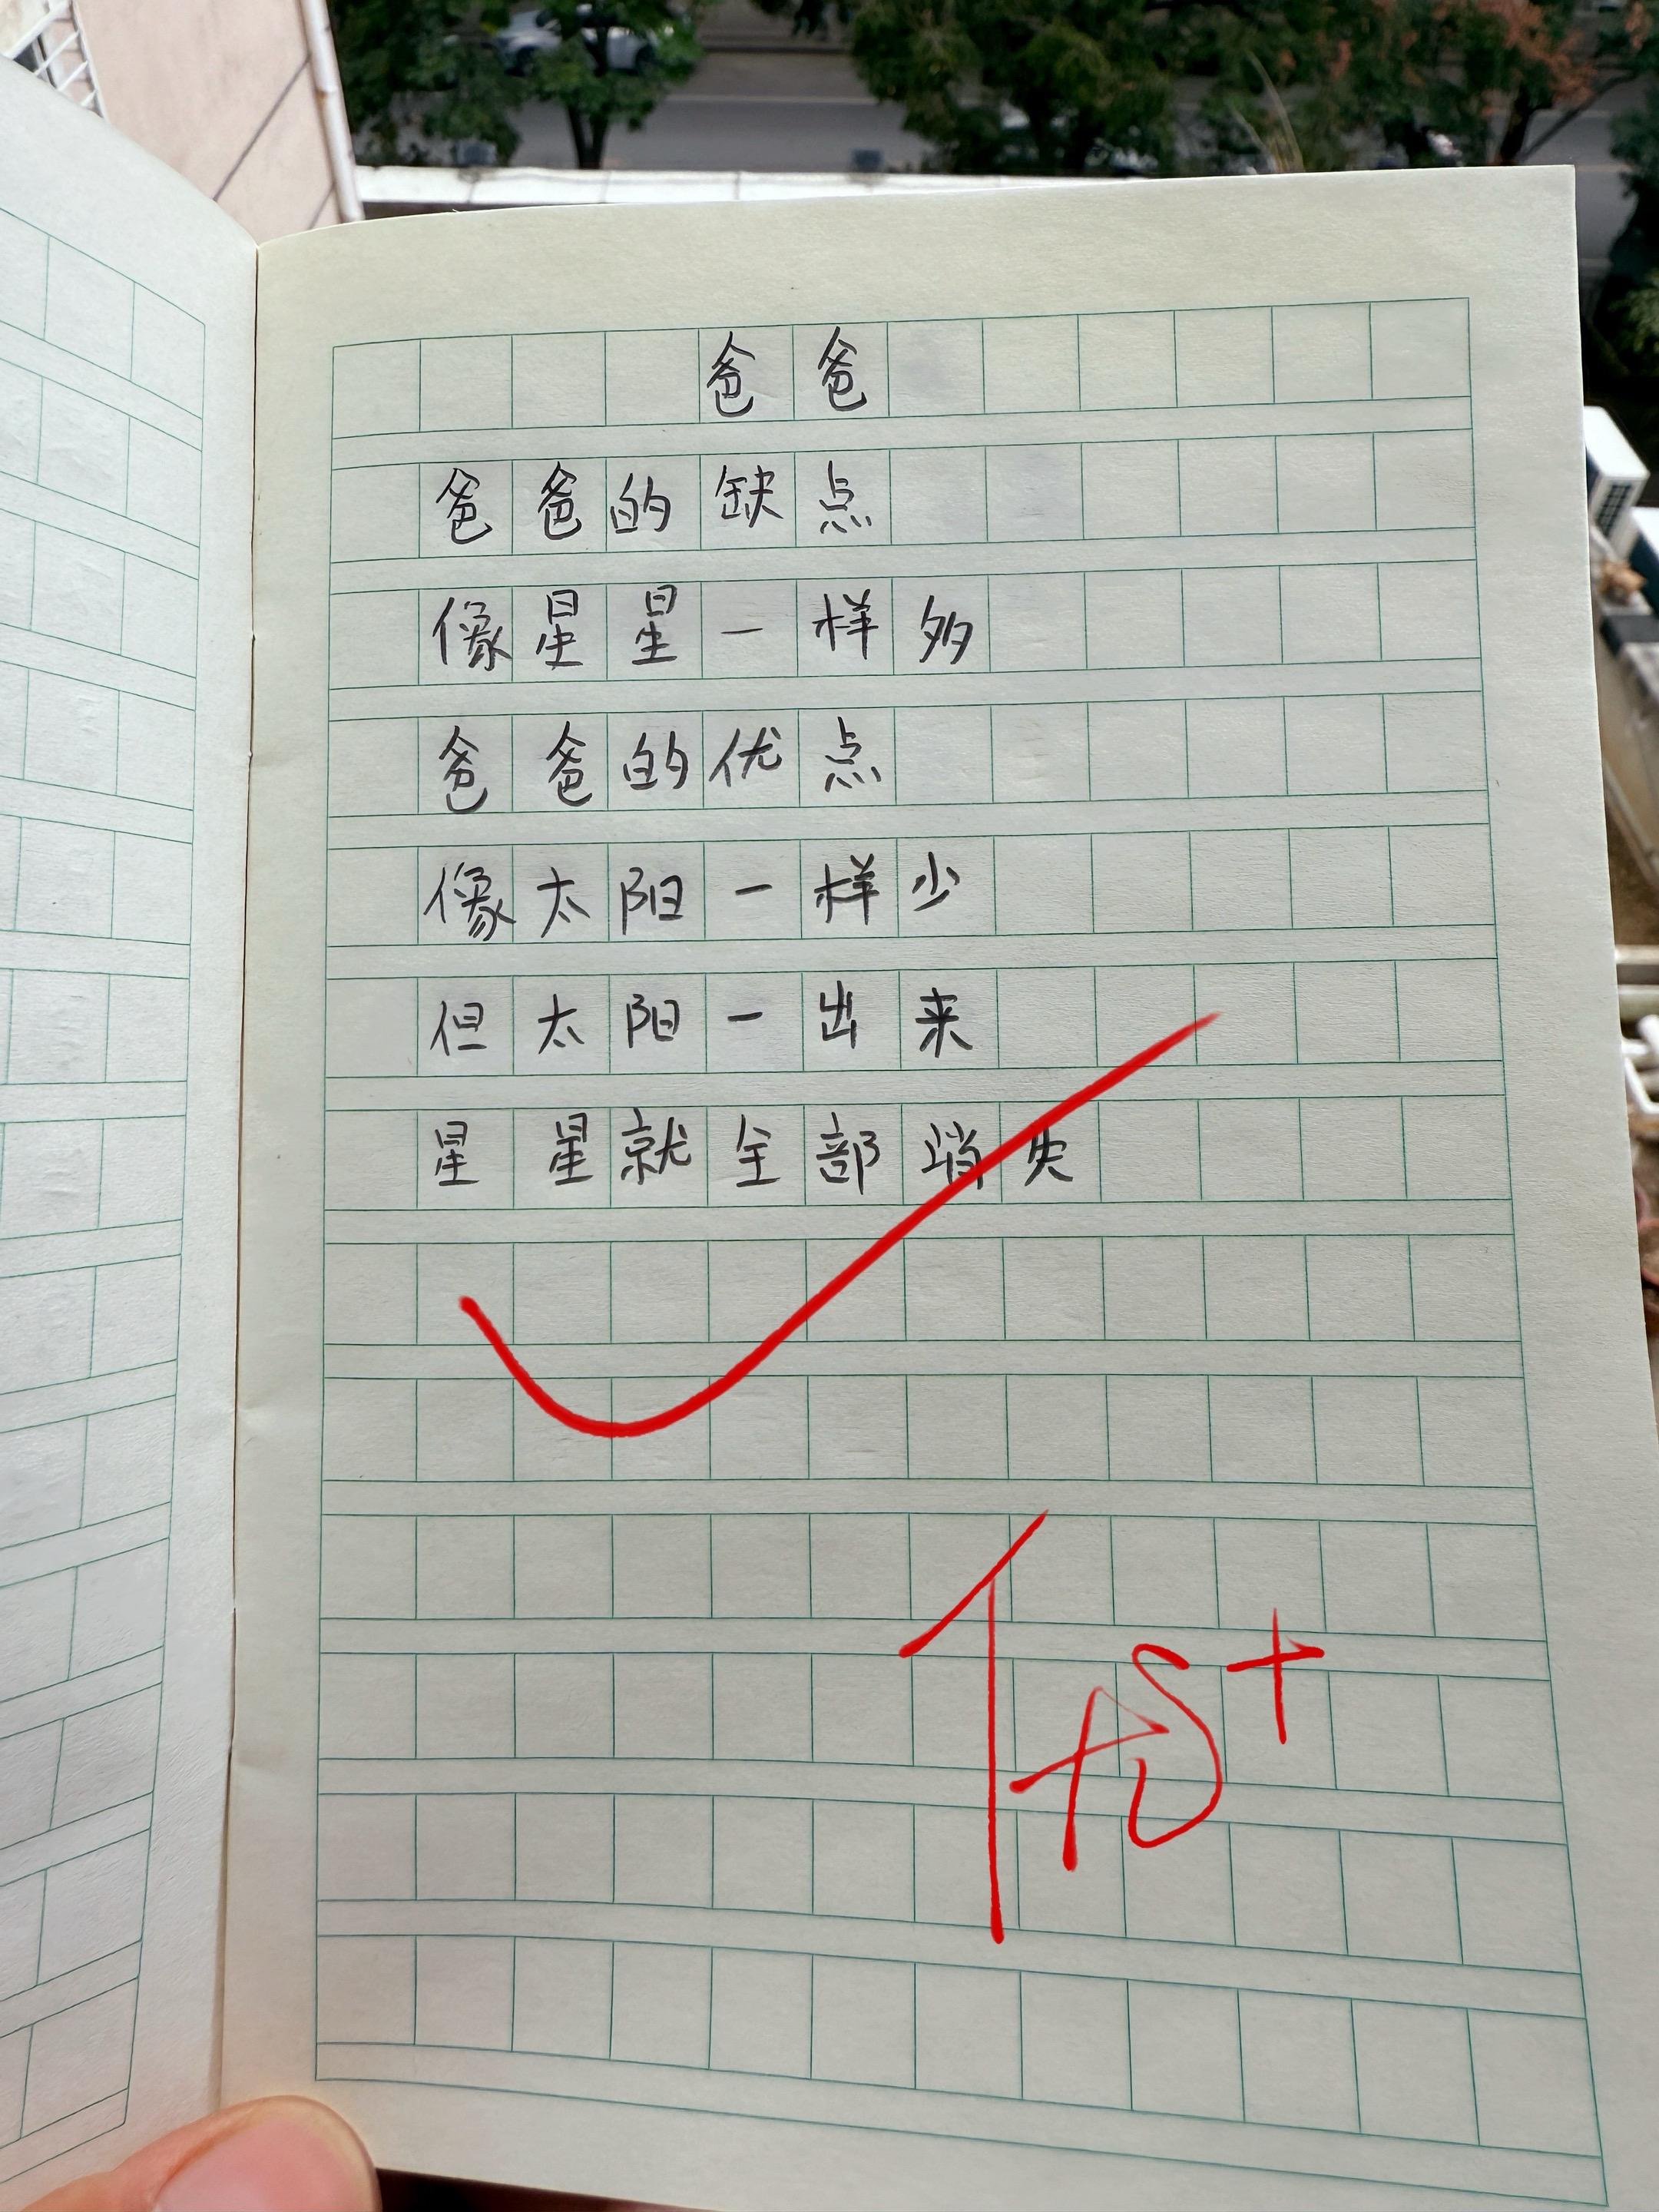 爸爸
爸爸的缺点
像星星一样多
爸爸的优点
像太阳一样少
但太阳一出来
星星就全部消失